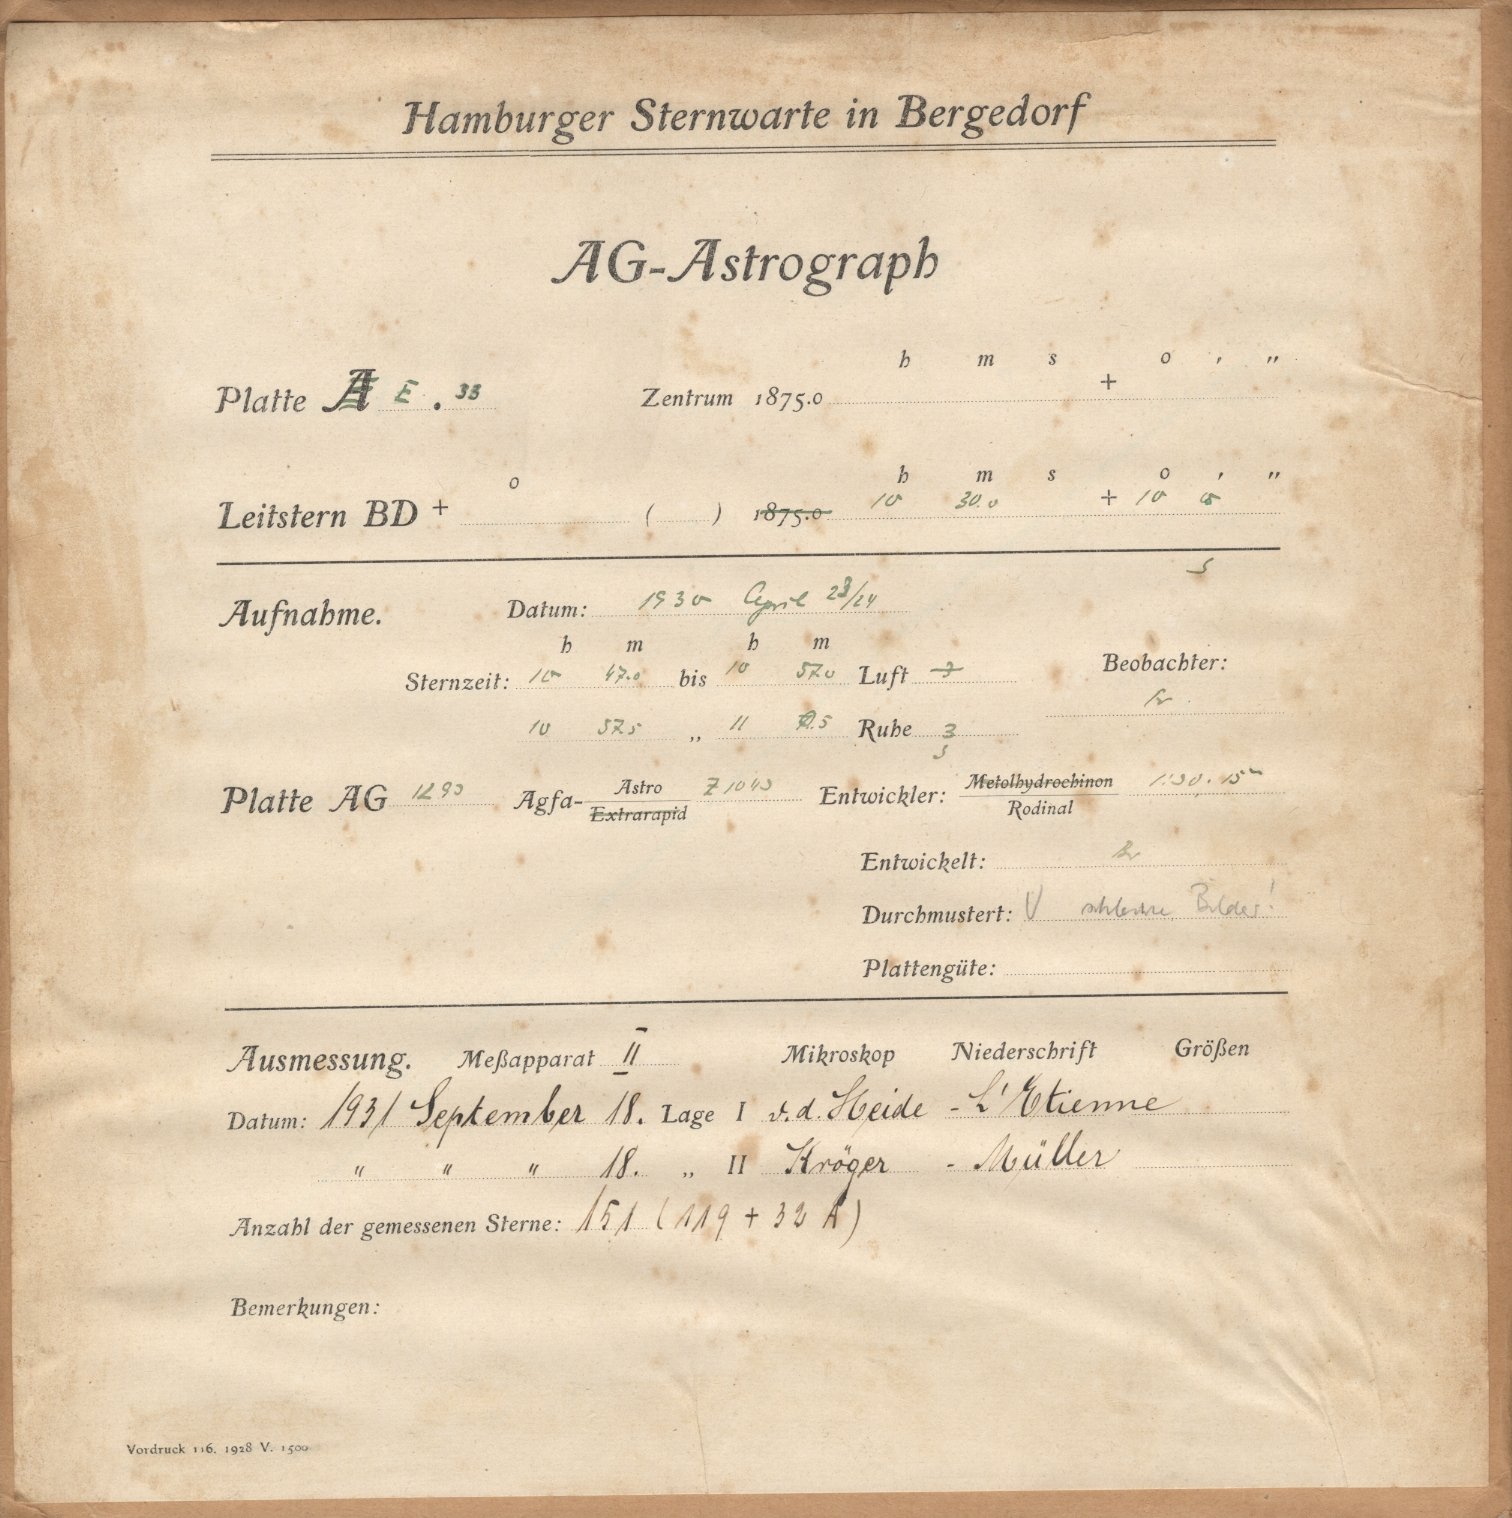 Hamburger Sternwarte in Bergedorf
AG-Astrograph
h m s o ' "
Platte A E . 33 Zentrum 1875.0 +
o h m s o ' "
Leitstern BD + ( ) 1875.0 10 30.0 + 10 0
Aufnahme. Datum: 1930 April 23/24
h m h m
Sternzeit: 10 47.0 bis 10 57.0 Luft 3 Beobachter:
10 57.5 „ 11 Ruhe 3
Platte AG 1293 Agfa- Astro Extrarapid Z 1043 Entwickler: Metolhydrochinon Rodinal
Entwickelt:
Durchmustert: V schlechte Bilder!
Plattengüte:
Ausmessung. Meßapparat II Mikroskop Niederschrift Größen
Datum: 1931 September 18. Lage I v.d. Heide - L'Etienne
" " " 18. „ II Kröger - Müller
Anzahl der gemessenen Sterne: 151 (119 + 32 A)
Bemerkungen:
Vordruck 116. 1928 V. 1500